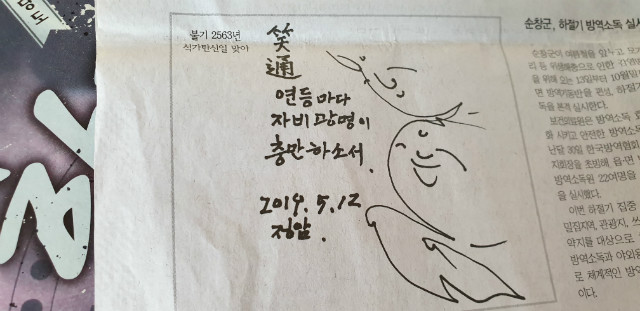 불기 2563년
석가탄신일 맞이
笑
通
연등마다
자비광명이
충만하소서.
2019.5.12
정암.
순창군, 하절기 방역소독 실시
순창군이
을 위해 오는 13일부터 10월
면 방역기동반을 편성, 하절기
독을 본격 실시한다.
방역소독
화 시키고 안전한 방역소
난달 30일 한국방역협회
지회장을 초빙해, 읍·면
방역소독원 22여명을
을 실시했다.
이번 하절기 집중
밀집지역, 관광지, 쓰
약지를 대상으로
방역소독과 야외용
로 체계적인 방역
이다.